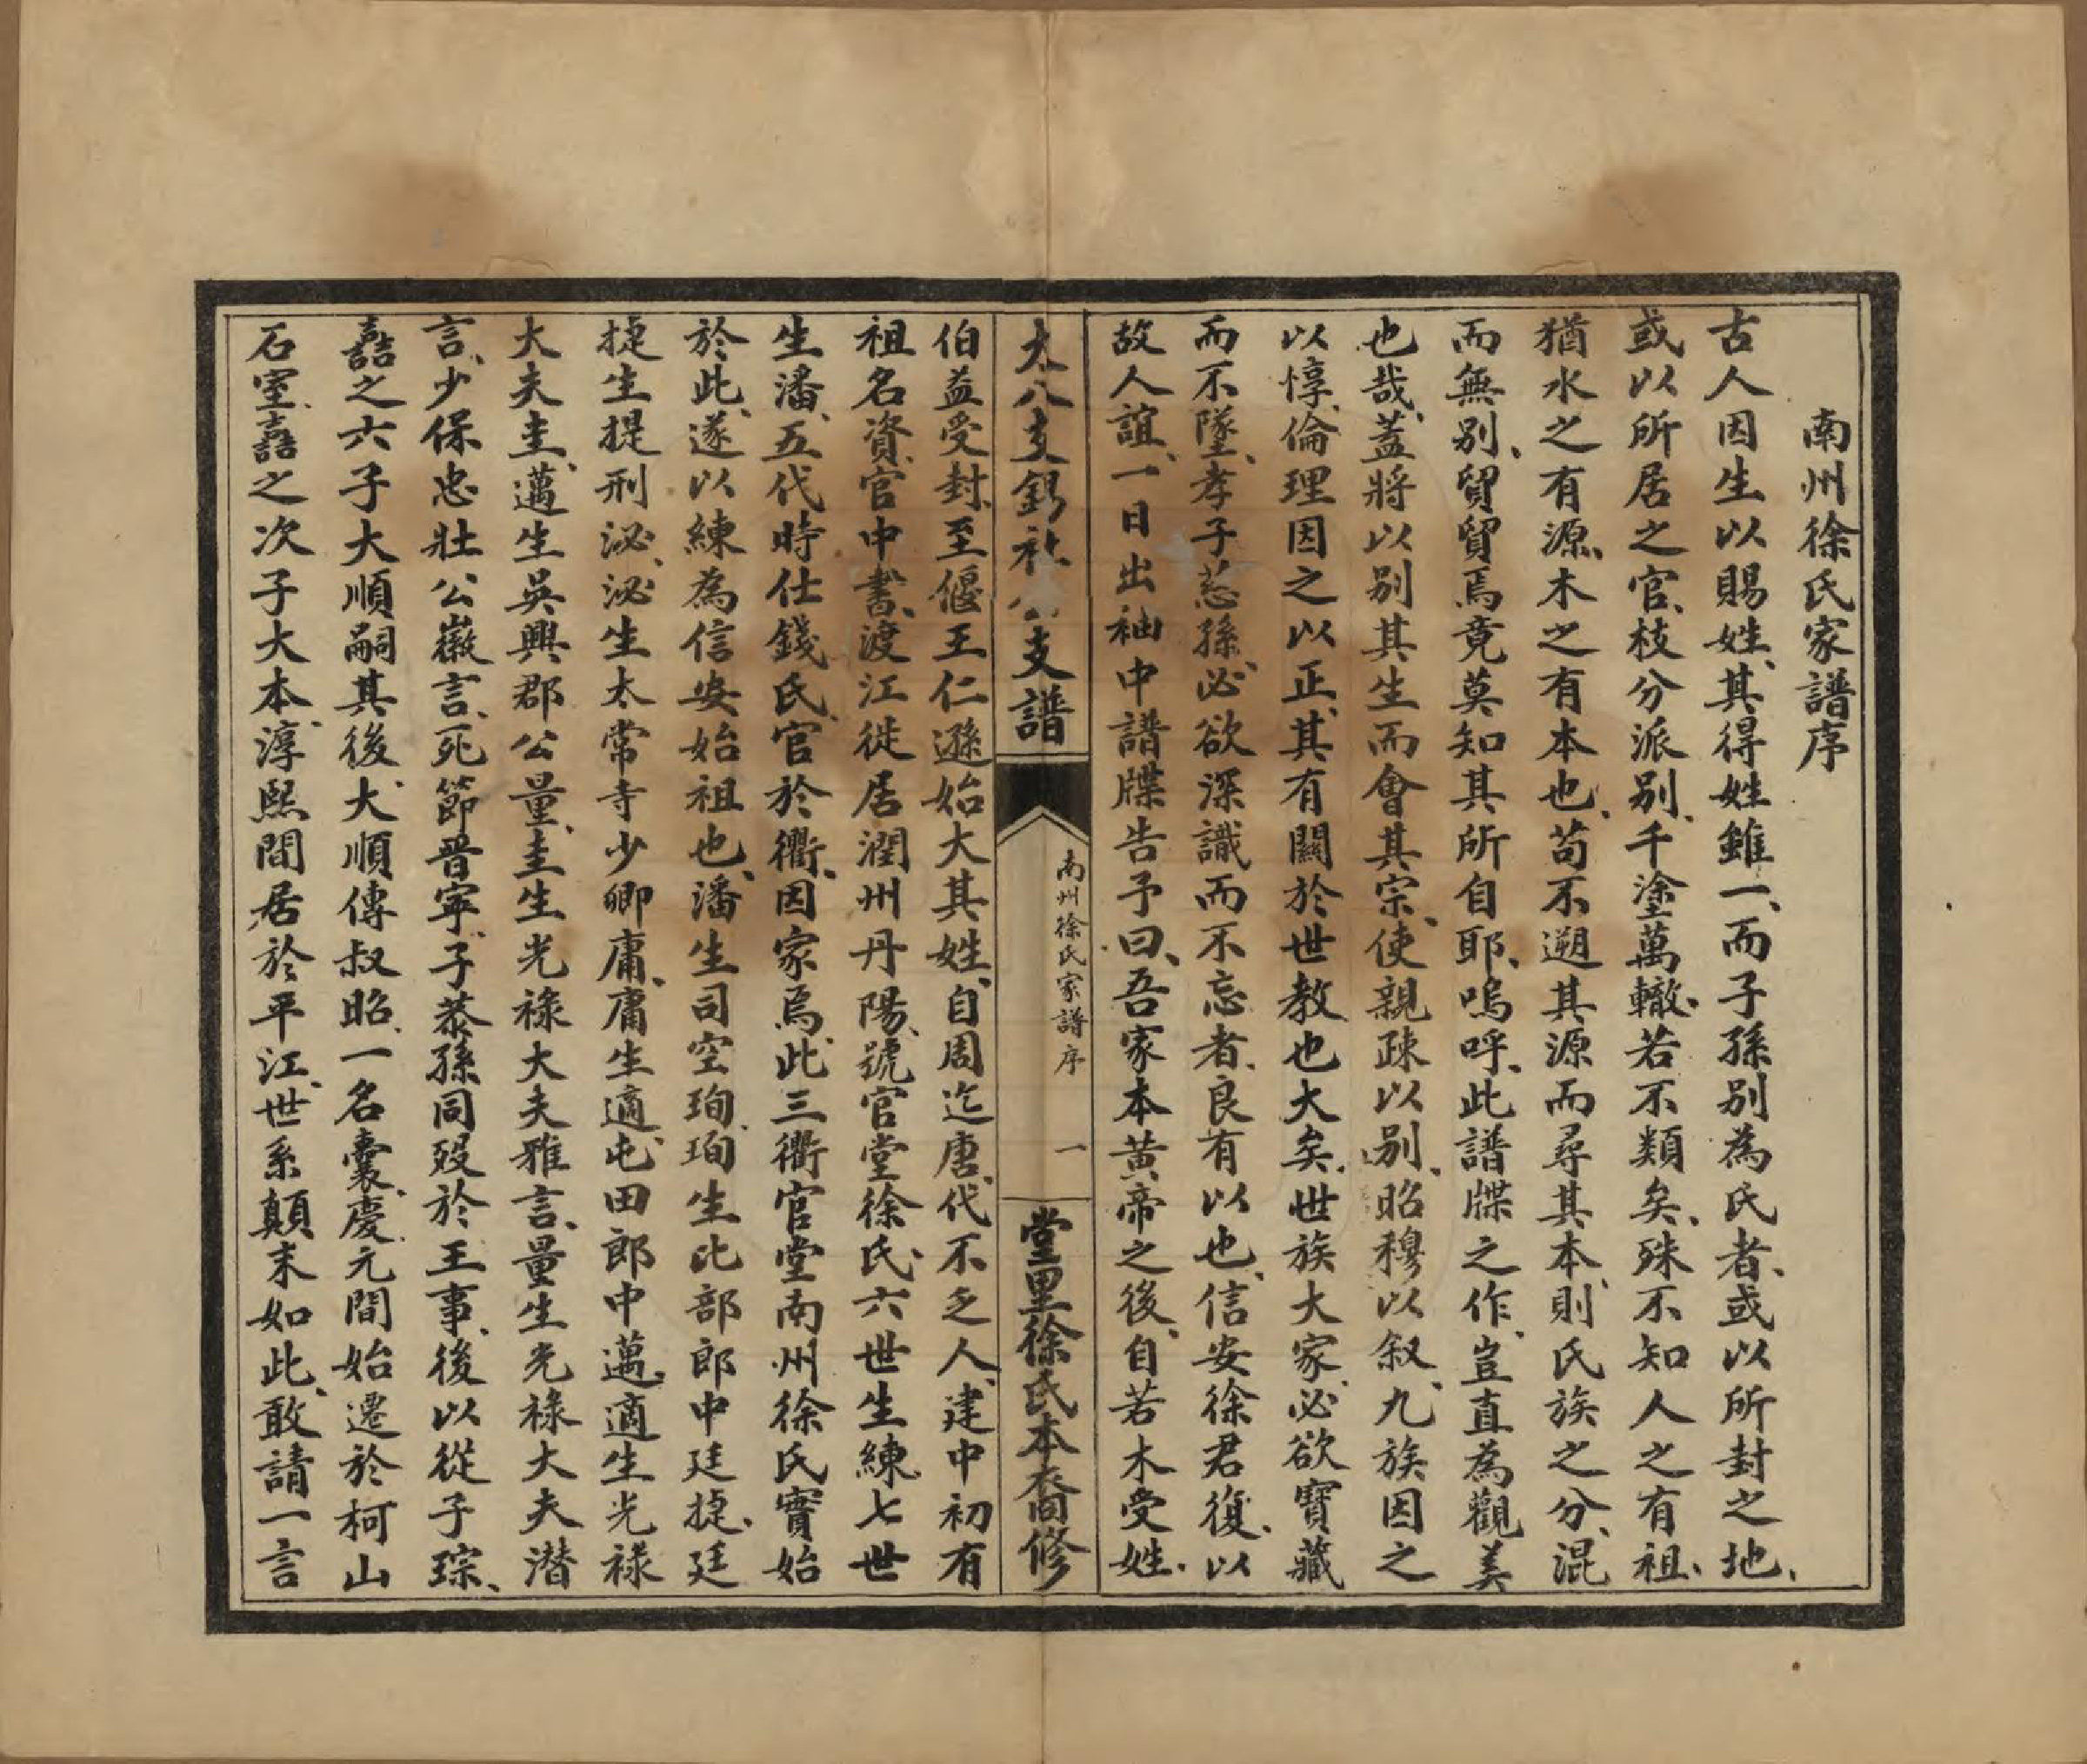 南州徐氏家譜序
古人因生以賜姓、其得姓雖一、而子孫別為氏者、或以所封之地、
或以所居之官、枝分派別、千塗萬轍、若不類矣、殊不知人之有祖、
猶水之有源、木之有本也、苟不遡其源而尋其本、則氏族之分、混
而無別、貿貿焉竟莫知其所自耶、嗚呼、此譜牒之作、豈直為觀美
也哉、蓋將以別其生而會其宗、使親疎以別、昭穆以叙、九族因之
以惇、倫理因之以正、其有關於世教也大矣、世族大家、必欲寶藏
而不墜、孝子慈孫、必欲深識而不忘者、良有以也、信安徐君復、以
故人誼、一日出袖中譜牒告予曰、吾家本黃帝之後、自若木受姓、
太八支 公支譜
南州徐氏家譜序
一
堂里徐氏本裔修
伯益受封、至偃王仁遜始大其姓、自周迄唐、代不乏人、建中初有
祖名資、官中書、渡江徙居潤州丹陽、號官堂徐氏、六世生練、七世
生潘、五代時仕錢氏、官於衢、因家焉、此三衢官堂南州徐氏實始
於此、遂以練為信安始祖也、潘生司空珣、珣生比部郎中廷捷、廷
捷生提刑泌、泌生太常寺少卿庸、庸生適、屯田郎中邁、適生光祿
大夫圭、邁生吳興郡公量、圭生光祿大夫雅言、量生光祿大夫潛
言、少保忠壯公徽言、死節晉寧、子恭孫同歿於王事、後以從子琮、
嚞之六子大順嗣其後、大順傳叔昭、一名囊、慶元間始遷於柯山
石室、嚞之次子大本、淳熙間居於平江、世系顛末如此、敢請一言